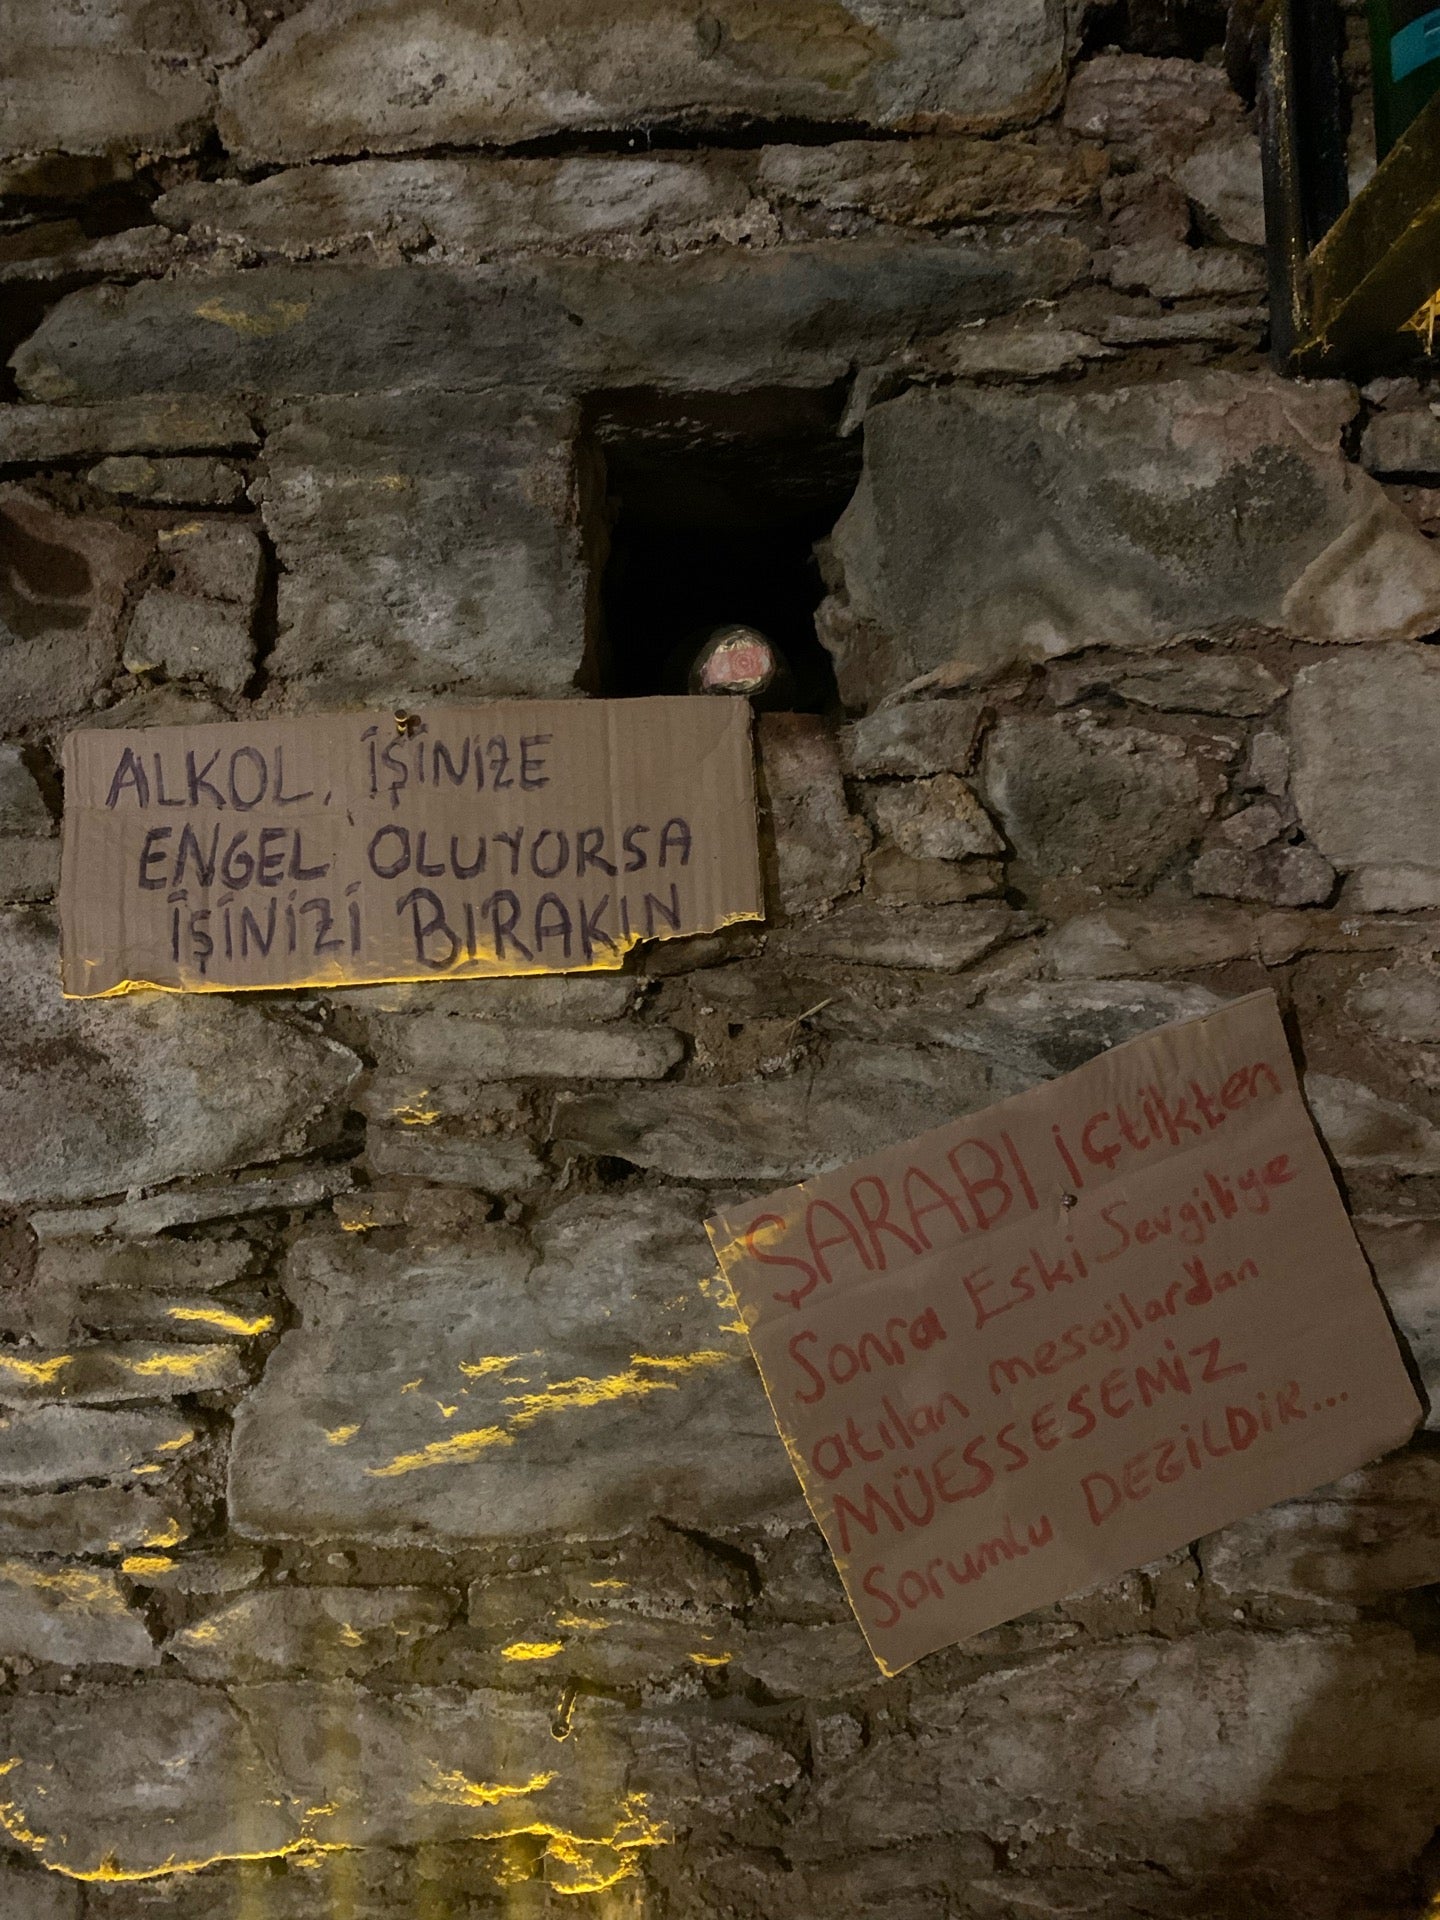 ALKOL, İŞİNİZE
ENGEL OLUYORSA
İŞİNİZİ BIRAKIN
ŞARABI içtikten
Sonra Eski Sevgiliye
atılan mesajlardan
MÜESSESEMİZ
Sorumlu DEĞİLDİR...